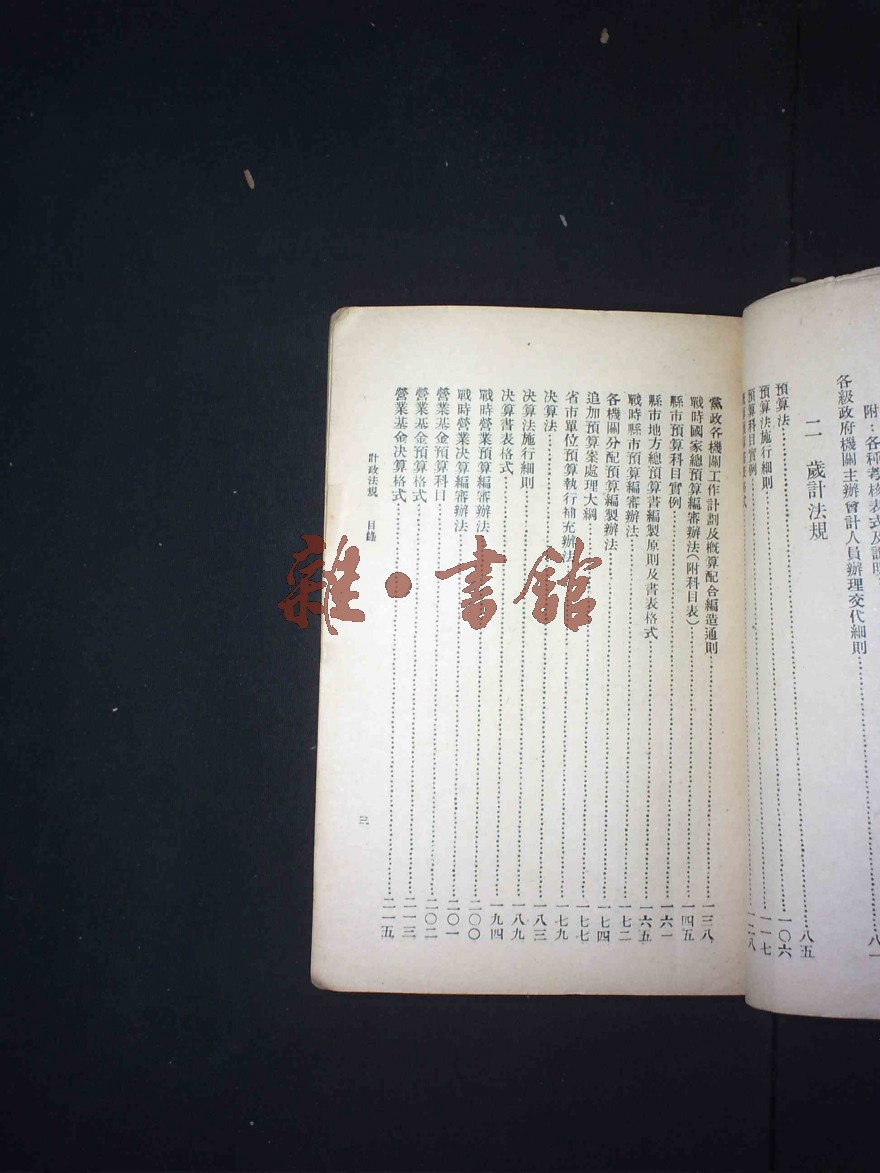 附：各種考核表式及說明
八一
各級政府機關主辦會計人員辦理交代細則
八五
二　歲計法規
預算法……一〇六
預算法施行細則……一一七
預算科目實例……一二八
黨政各機關工作計劃及概算配合編造通則……一三八
戰時國家總預算編審辦法（附科目表）……一四五
縣市預算科目實例……一六一
縣市地方總預算書編製原則及書表格式……一六五
戰時縣市預算編審辦法……一七二
各機關分配預算編製辦法……一七四
追加預算案處理大綱……一七七
省市單位預算執行補充辦法……一七九
決算法……一八三
決算法施行細則……一八九
決算書表格式……一九四
戰時營業預算編審辦法……二〇〇
戰時營業決算編審辦法……二〇一
營業基金預算科目……二〇二
營業基金預算格式……二一三
營業基金決算格式……二一五
計政法規　目錄
三
雜·書館